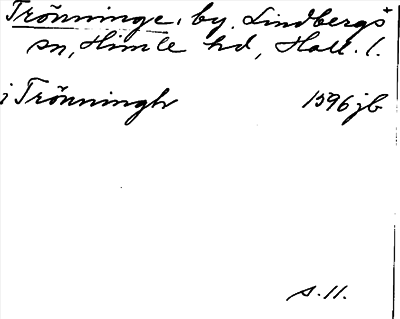 Trönninge, by, Lindbergs
sn, Himle hd, Hall. l.
i Trönningh 1596 jb
s. 11.